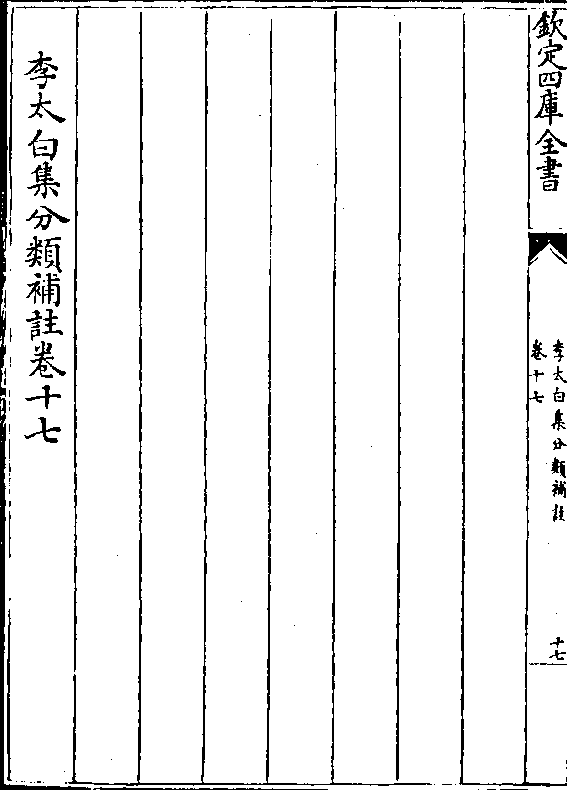 欽定四庫全書
李太白集分類補註
卷十七
十七
李太白集分類補註卷十七